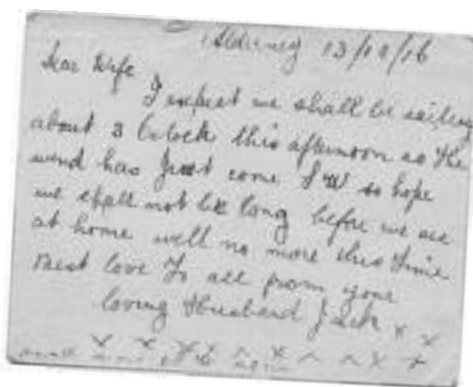 Alderney 13/10/16
Dear Wife
I expect we shall be sailing
about 3 Oclock this afternoon as the
wind has just come S W so hope
we shall not be long before we are
at home well no more this time
Best love To all from your
loving Husband Jack x x
x x x x x x x x x